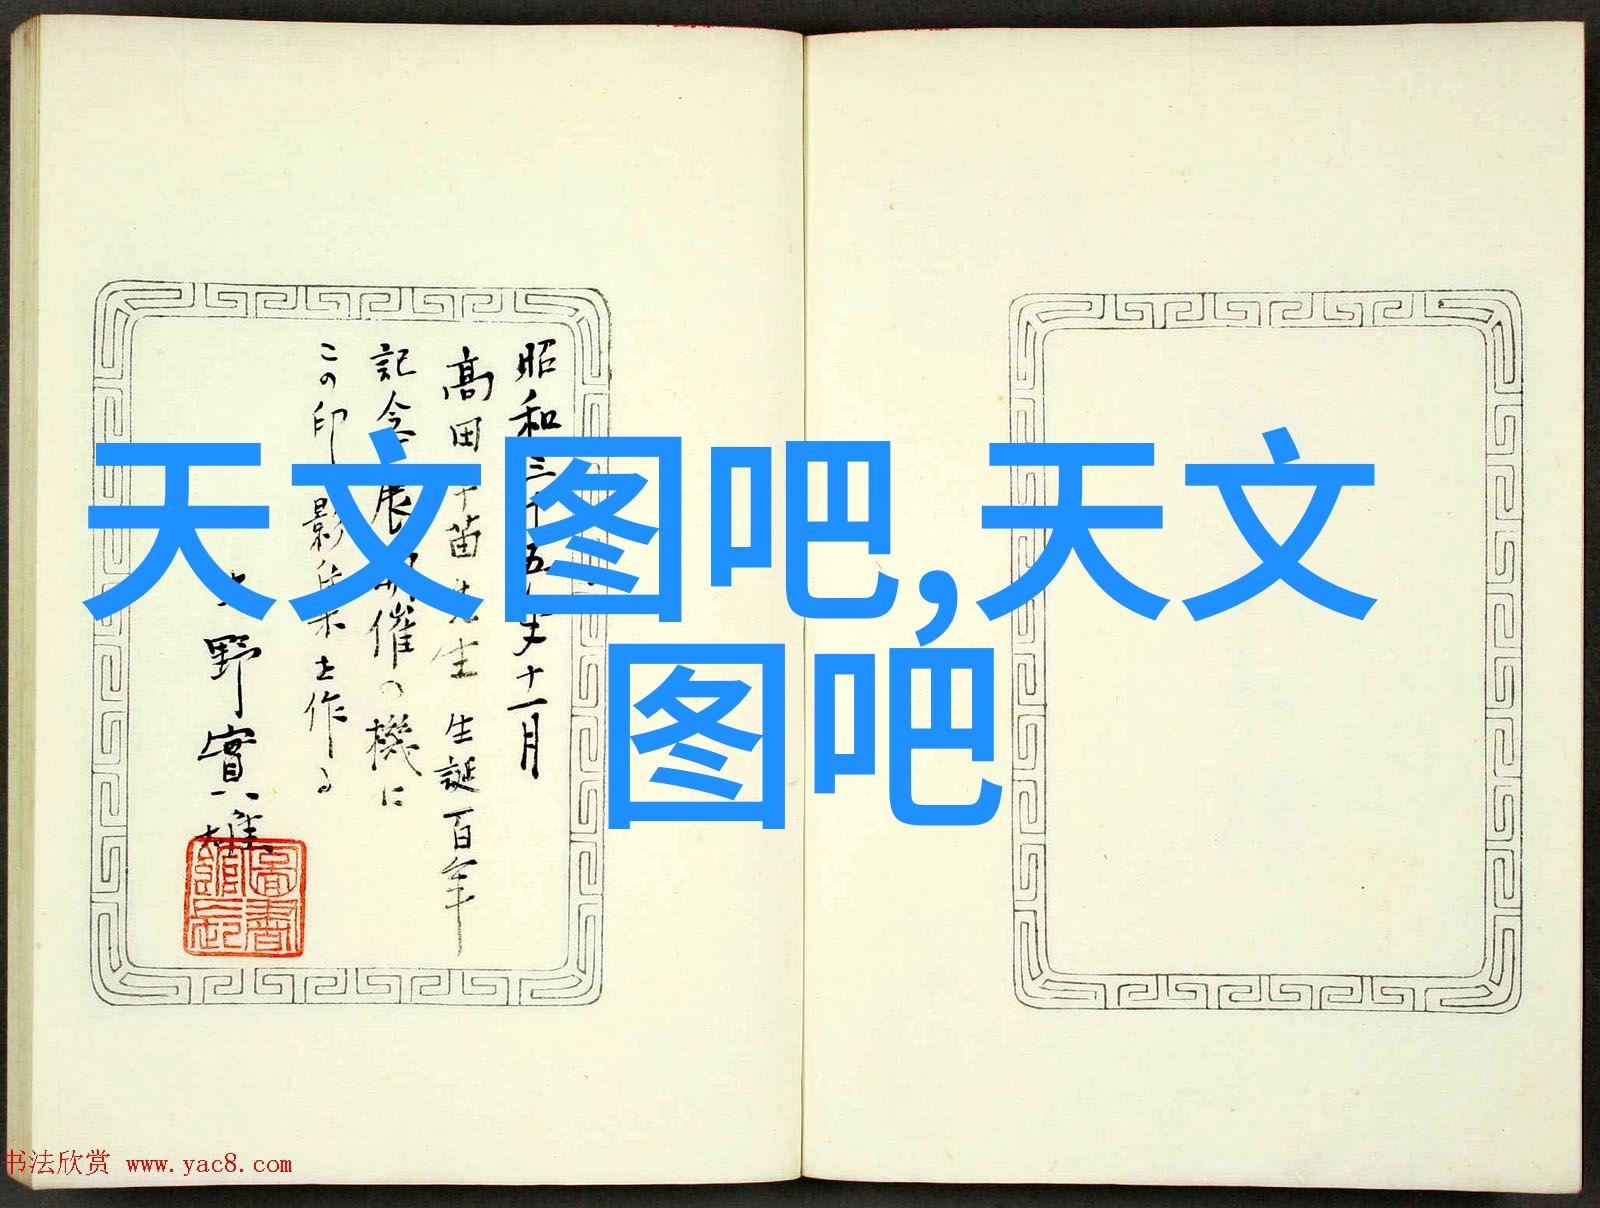 昭和三十五年十一月
高田竹山先生 生誕百年
記念展 開催の機に
この印影集を作る
野實雄
圖書
館長
天文图吧,天文
图吧
书法欣赏 www.yac8.com